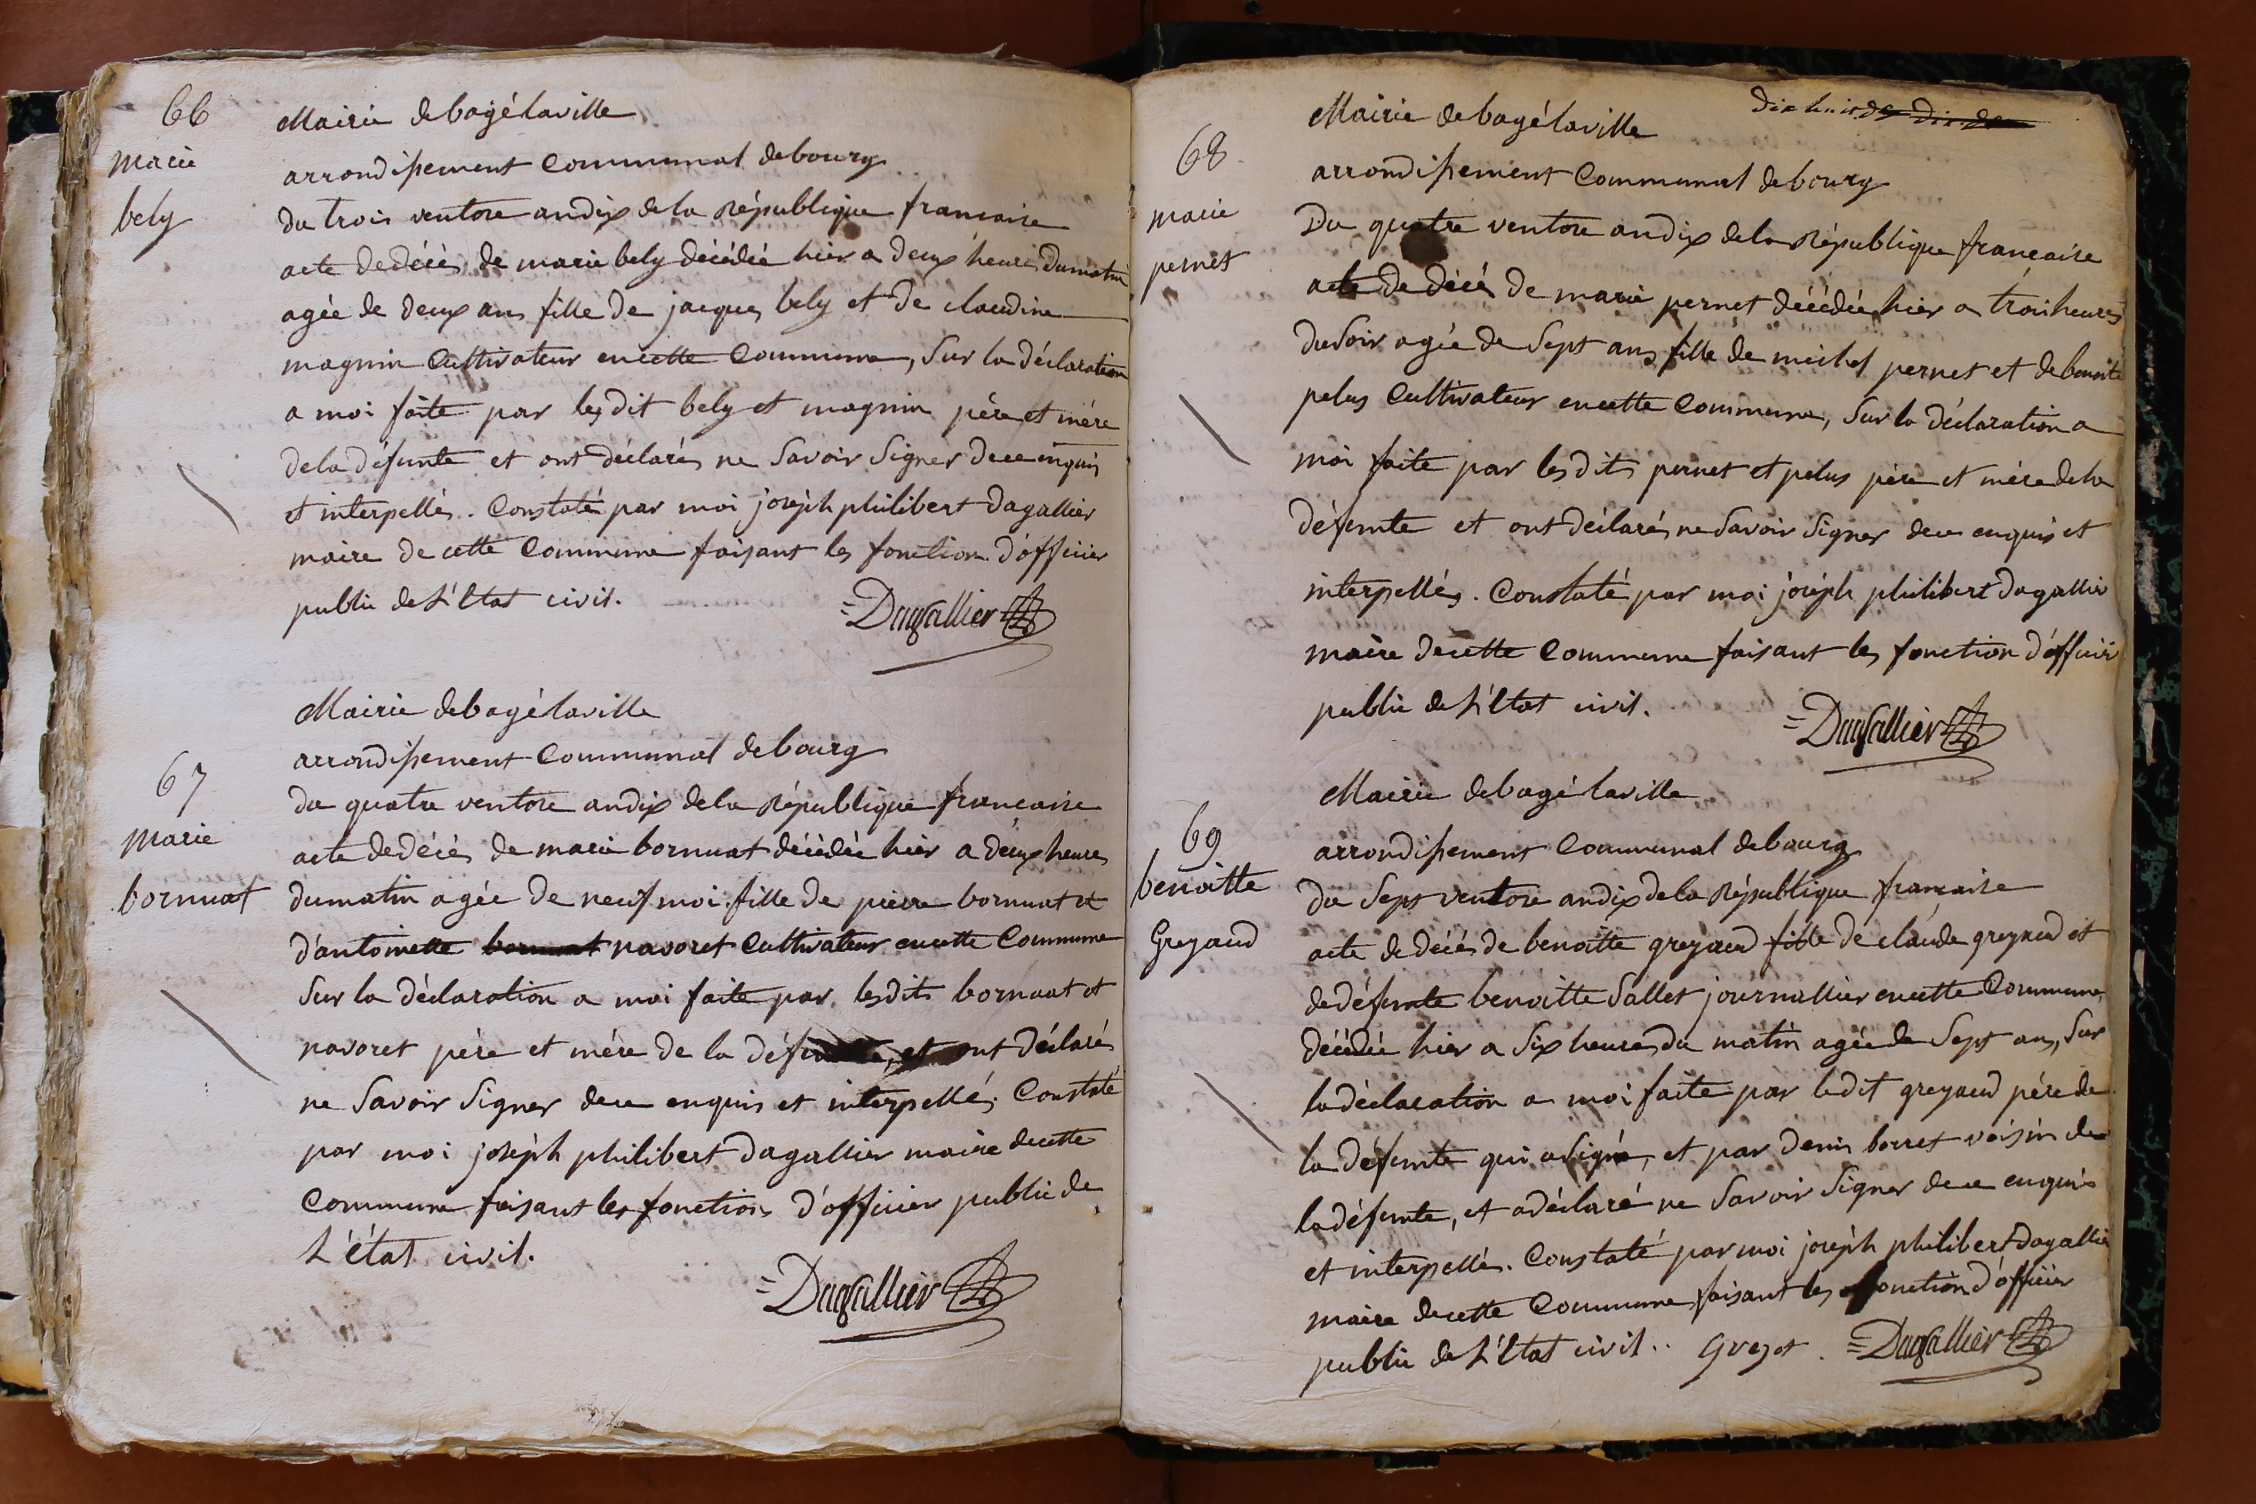 66
marie
bely
Mairie de bagé laville
arrondissement communal de bourg
du trois ventose an dix de la République francaise
acte de décès de marie bely décédée hier a deux heures du matin
agée de deux ans fille de jacques bely et de claudine
magnin cultivateur en cette commune, sur la déclaration
a moi faite par les dit bely et magnin père et mère
de la défunte et ont déclarés ne savoir signer de ce enquis
et interpellés. constaté par moi joséph philibert dagallier
maire de cette commune faisant les fonction d'officier
public de L'Etat civil.
Dagallier
67
marie
bornuat
Mairie de bagé laville
arrondissement communal de bourg
du quatre ventose an dix de la République francaise
acte de décès de marie bornuat décédée hier a deux heures
du matin agée de neuf moi fille de pierre bornuat et
d'antoinette bornuat navoret cultivateur en cette commune
sur la déclaration a moi faite par lesdits bornuat et
navoret père et mère de la défunte, et ont déclarés
ne savoir signer de ce enquis et interpellés. constaté
par moi joséph philibert dagallier maire de cette
commune faisant les fonctions d'officier public de
L'état civil.
Dagallier
dix huit
68
marie
pernet
Mairie de bagé laville
arrondissement communal de bourg
Du quatre ventose an dix de la République francaise
acte de décés de marie pernet décédée hier a trois heures
du soir agée de sept ans fille de michel pernet et de benoite
pelus cultivateur en cette commune, sur la déclaration a
moi faite par lesdits pernet et pelus père et mère de la
défunte et ont déclarés ne savoir signer de ce enquis et
interpellés. constaté par moi joséph philibert dagallier
maire de cette commune faisant les fonction d'officier
public de L'Etat civil.
Dagallier
69
benoitte
Greyaud
Mairie de bagé laville
arrondissement communal de bourg
du sept ventose an dix de la République francaise
acte de décés de benoitte greyaud fille de claude greyaud et
de défunte benoitte Sallet journallier en cette commune,
décédée hier a six heures du matin agée de sept ans, sur
la déclaration a moi faite par ledit greyaud père de
la défunte qui a signé, et par denis borret voisin de
la défunte, et a déclaré ne savoir signer de ce enquis
et interpellés. constaté par moi joséph philibert dagallier
maire de cette commune faisant les fonction d'officier
public de L'Etat civil.. Dagallier